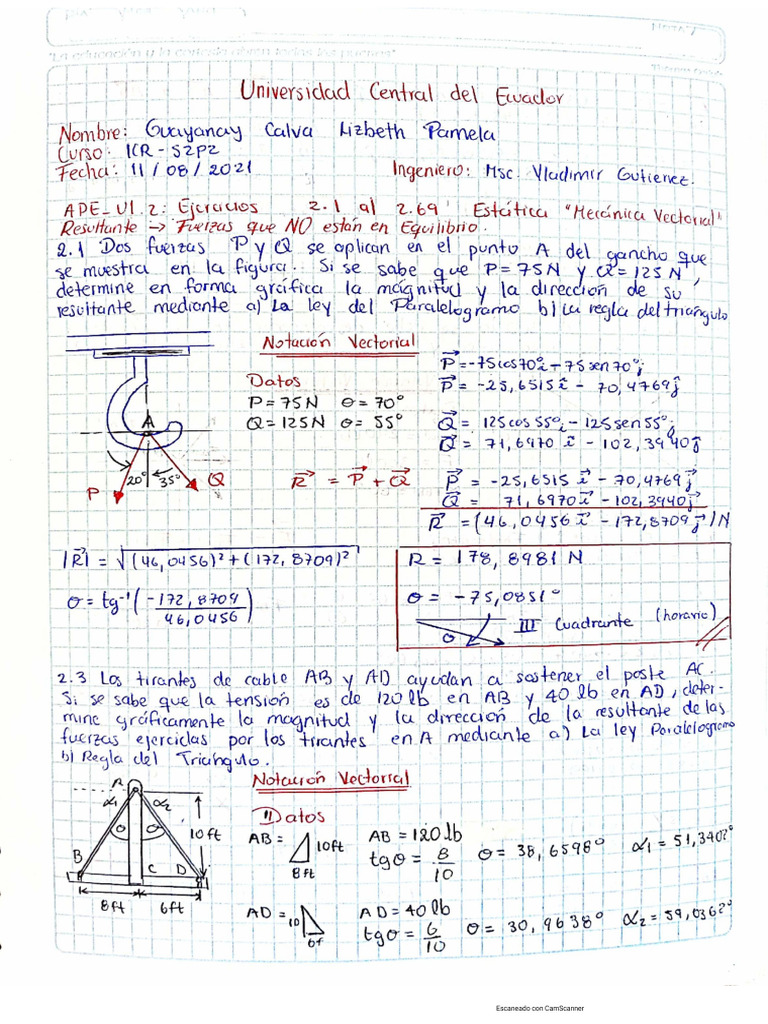 "La educación y la cortesía abren todas las puertas"
Universidad Central del Ecuador
Nombre: Guayanay Calva Lizbeth Pamela
Curso: ICR-S2P2
Fecha: 11/08/2021 Ingeniero: Msc. Vladimir Gutierrez.
APE_U1.2: Ejercicios 2.1 al 2.69 Estática "Mecánica Vectorial"
Resultante → Fuerzas que NO están en Equilibrio.
2.1 Dos fuerzas P y Q se aplican en el punto A del gancho que
se muestra en la figura. Si se sabe que P=75N y Q=125N,
determine en forma gráfica la magnitud y la dirección de su
resultante mediante a) La ley del Paralelogramo b) La regla del triángulo
Notación Vectorial
Datos
P=75N θ=70°
Q=125N θ=55°
R⃗ = P⃗ + Q⃗
A
20° 35°
P Q
P⃗=-75cos70°i-75sen70°j
P⃗= -25,6515i - 70,4769j
Q⃗= 125cos55°i-125sen55°j
Q⃗= 71,6970i - 102,3940j
P⃗ = -25,6515i⃗ - 70,4769j⃗
Q⃗ = 71,6970i⃗ - 102,3940j⃗
R⃗ = (46,0456i⃗ - 172,8709j⃗)N
|R⃗| = √(46,0456)²+(172,8709)²
θ = tg⁻¹(-172,8709/46,0456)
R = 178,8981 N
θ = -75,0851°
θ III Cuadrante (horario)
2.3 Los tirantes de cable AB y AD ayudan a sostener el poste AC.
Si se sabe que la tensión es de 120lb en AB y 40lb en AD, deter-
mine gráficamente la magnitud y la dirección de la resultante de las
fuerzas ejercidas por los tirantes en A mediante a) La ley Paralelogramo
b) Regla del Triángulo.
Notación Vectorial
A
α1 α2
θ θ
10ft
B C D
8ft 6ft
Datos
AB = 10ft 8ft AB = 120lb tgθ = 8/10 θ = 38,6598° α1 = 51,3402°
AD = 10 6f AD = 40lb tgθ = 6/10 θ = 30,9638° α2 = 59,0362°
Escaneado con CamScanner